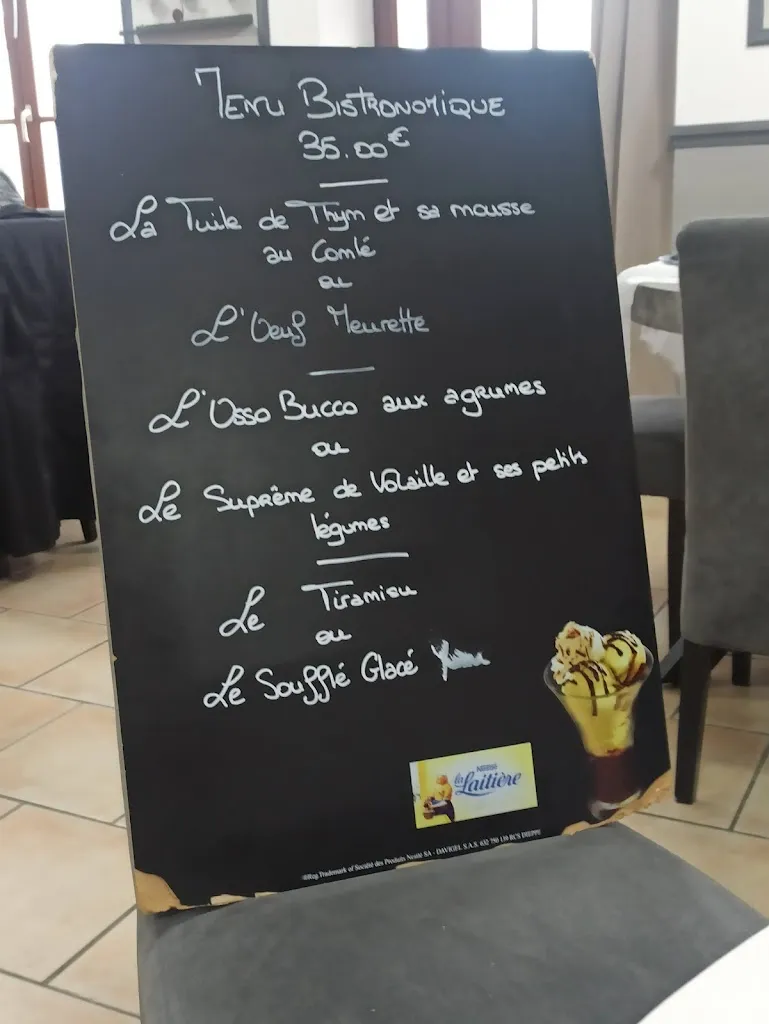 Menu Bistronomique
35.00€
La Tuile de Thym et sa mousse
au Comté
ou
L'Oeuf Meurette
L'Osso Bucco aux agrumes
ou
Le Suprême de Volaille et ses petits
légumes
Le Tiramisu
ou
Le Soufflé Glacé
Nestlé
la Laitière
®Reg.Trademark of Société des Produits Nestlé SA - DAVIGEL S.A.S. 632 750 139 RCS DIEPPE